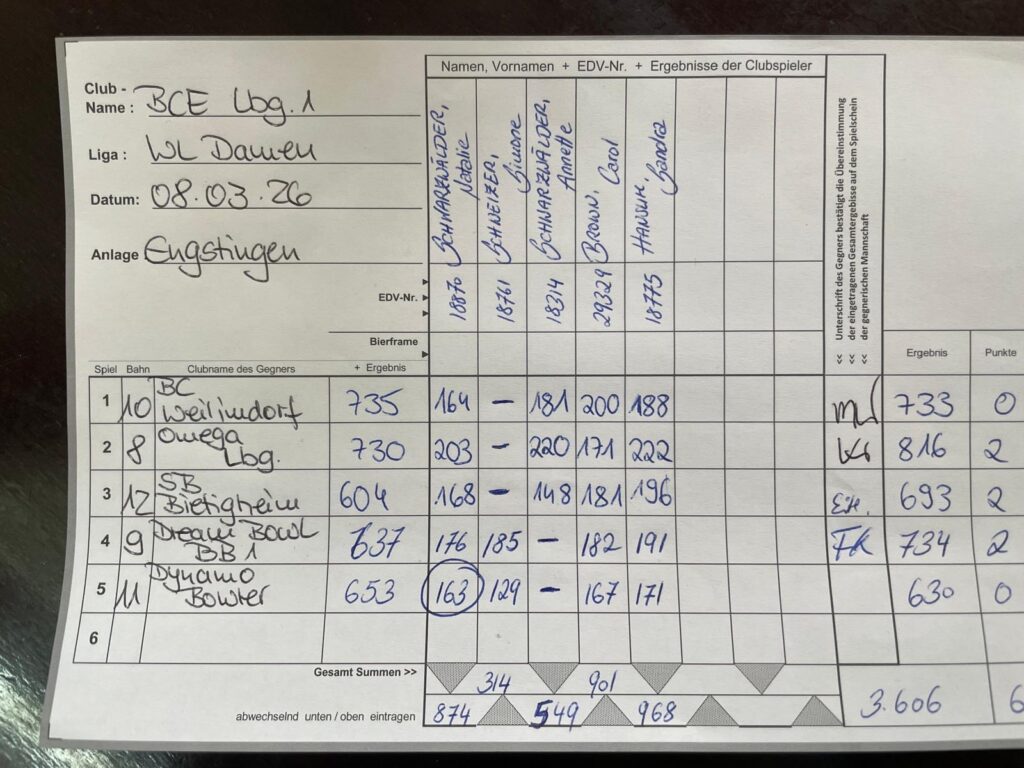 Namen, Vornamen + EDV-Nr. + Ergebnisse der Clubspieler
Club -
Name : BCE Lbg. 1
Liga : WL Damen
Datum: 08.03.26
Anlage Engstingen
SCHWARZWÄLDER, Natalie
SCHWEIZER, Simone
SCHWARZWÄLDER, Annette
BROWN, Carol
Sandra
<< Unterschrift des Gegners bestätigt die Übereinstimmung
<< der eingetragenen Gesamtergebisse auf dem Spielschein
<< der gegnerischen Mannschaft
EDV-Nr. 18876 18761 18314 29329 18775
Bierframe
Spiel Bahn Clubname des Gegners + Ergebnis Ergebnis Punkte
1 10 BC Weilimdorf 735 164 – 181 200 188 733 0
2 8 Omega Lbg. 730 203 – 220 171 222 816 2
3 12 SB Bietigheim 604 168 – 148 181 196 EH. 693 2
4 9 Dream Bowl BB 1 637 176 185 – 182 191 FK 734 2
5 11 Dynamo 653 163 129 – 167 171 630 0
6
Gesamt Summen >> 314 901
abwechselnd unten / oben eintragen 874 549 968 3.606 6